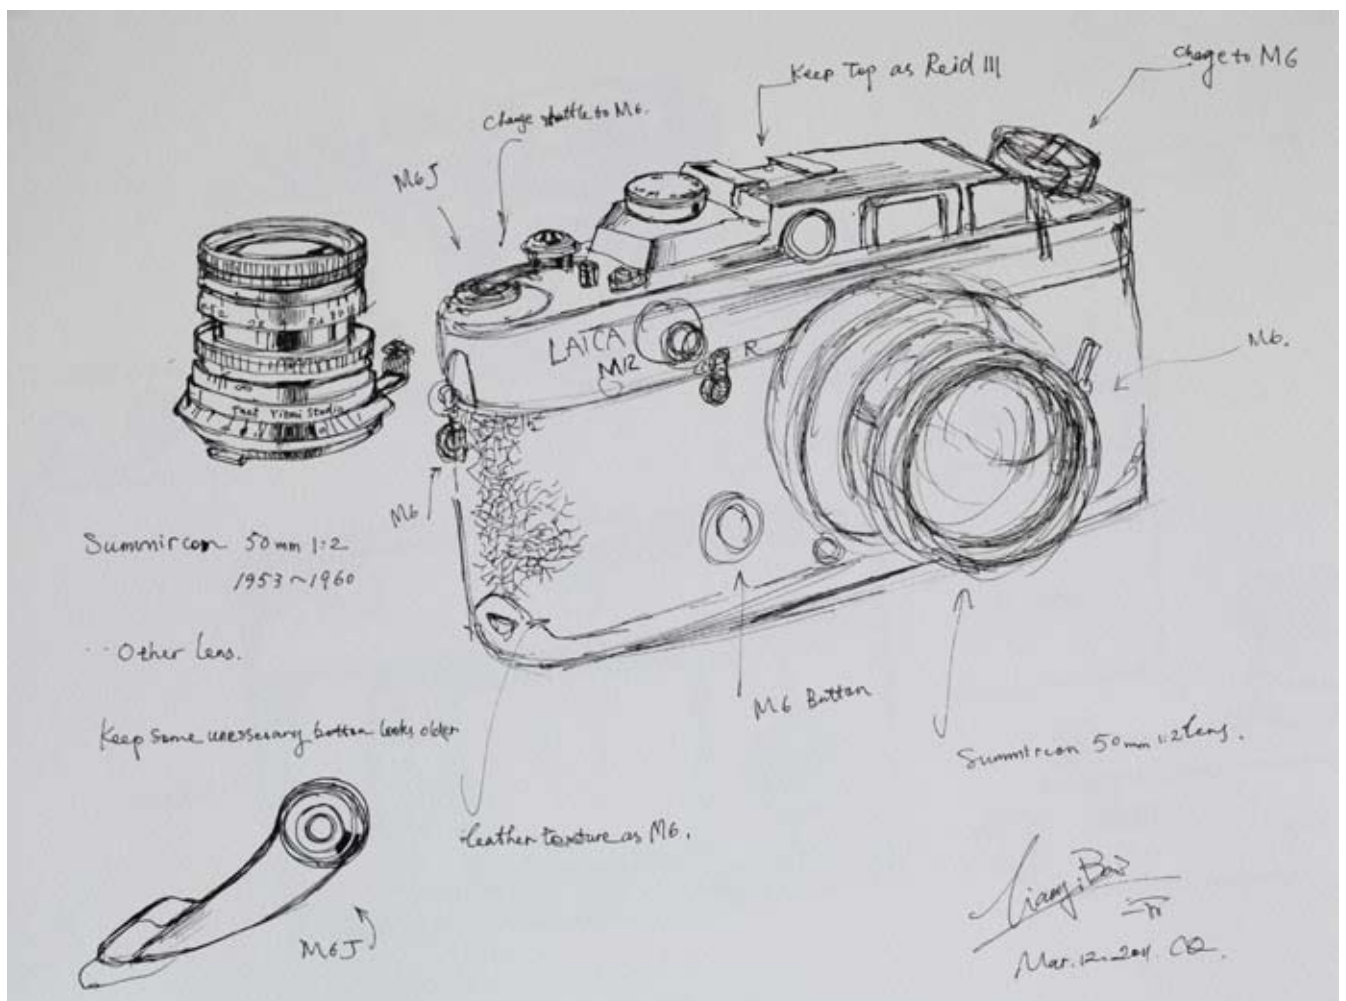 Keep Top as Reid III
Chage to M6
Change shuttle to M6.
M6J
LAICA
M12
R
M6.
M6
Fast Yitmi Studio
Summircon 50mm 1:2
1953~1960
..Other Lens.
M6 Button
Keep Some unessesary botton looks older
Summircon 50mm 1:2 Lens.
leather texture as M6.
M6J
Mar. 12. 2011 CQ.